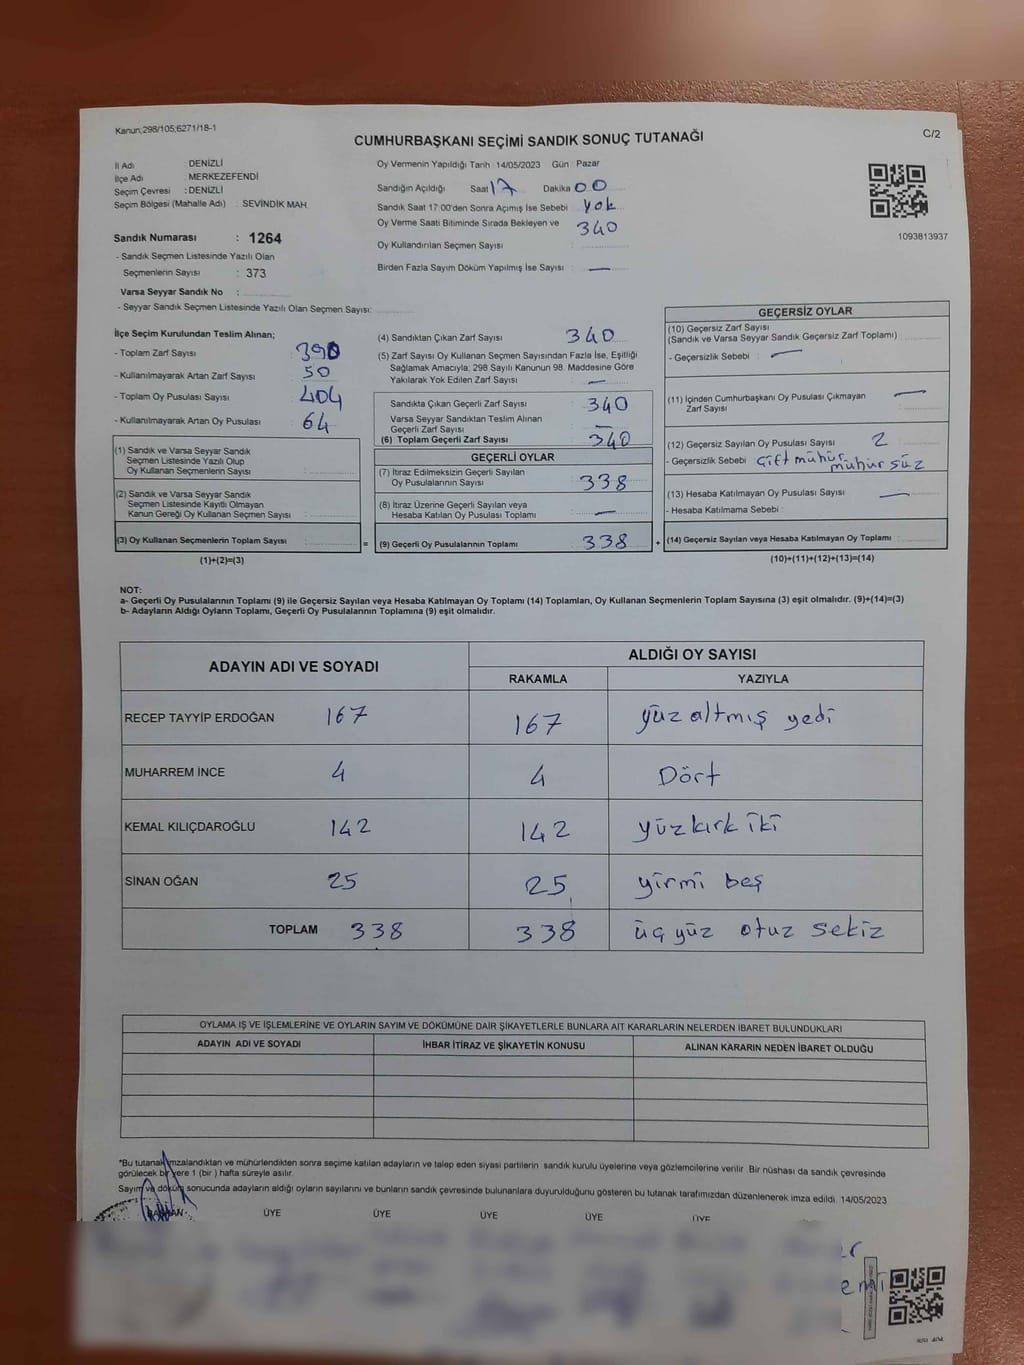 Kanun;298/105;6271/18-1
C/2
CUMHURBAŞKANI SEÇİMİ SANDIK SONUÇ TUTANAĞI
İl Adı : DENİZLİ
İlçe Adı : MERKEZEFENDİ
Seçim Çevresi : DENİZLİ
Seçim Bölgesi (Mahalle Adı) : SEVİNDİK MAH.
Oy Vermenin Yapıldığı Tarih : 14/05/2023 Gün : Pazar
Sandığın Açıldığı Saat 17 Dakika 00
Sandık Saat 17:00'den Sonra Açımış İse Sebebi : yok
Oy Verme Saati Bitiminde Sırada Bekleyen ve 340
Oy Kullandırılan Seçmen Sayısı :
Birden Fazla Sayım Döküm Yapılmış İse Sayısı : —
1093813937
Sandık Numarası : 1264
- Sandık Seçmen Listesinde Yazılı Olan
Seçmenlerin Sayısı : 373
Varsa Seyyar Sandık No :
- Seyyar Sandık Seçmen Listesinde Yazılı Olan Seçmen Sayısı:
İlçe Seçim Kurulundan Teslim Alınan;
- Toplam Zarf Sayısı : 390
- Kullanılmayarak Artan Zarf Sayısı : 50
- Toplam Oy Pusulası Sayısı : 404
- Kullanılmayarak Artan Oy Pusulası : 64
(1) Sandık ve Varsa Seyyar Sandık
Seçmen Listesinde Yazılı Olup
Oy Kullanan Seçmenlerin Sayısı :
(2) Sandık ve Varsa Seyyar Sandık
Seçmen Listesinde Kayıtlı Olmayan
Kanun Gereği Oy Kullanan Seçmen Sayısı :
(3) Oy Kullanan Seçmenlerin Toplam Sayısı :
(1)+(2)=(3)
(4) Sandıktan Çıkan Zarf Sayısı : 340
(5) Zarf Sayısı Oy Kullanan Seçmen Sayısından Fazla İse, Eşitliği
Sağlamak Amacıyla; 298 Sayılı Kanunun 98. Maddesine Göre
Yakılarak Yok Edilen Zarf Sayısı : —
Sandıkta Çıkan Geçerli Zarf Sayısı : 340
Varsa Seyyar Sandıktan Teslim Alınan
Geçerli Zarf Sayısı : —
(6) Toplam Geçerli Zarf Sayısı : 340
GEÇERLİ OYLAR
(7) İtiraz Edilmeksizin Geçerli Sayılan
Oy Pusulalarının Sayısı : 338
(8) İtiraz Üzerine Geçerli Sayılan veya
Hesaba Katılan Oy Pusulası Toplamı : —
(9) Geçerli Oy Pusulalarının Toplamı : 338
GEÇERSİZ OYLAR
(10) Geçersiz Zarf Sayısı
(Sandık ve Varsa Seyyar Sandık Geçersiz Zarf Toplamı) :
- Geçersizlik Sebebi : —
(11) İçinden Cumhurbaşkanı Oy Pusulası Çıkmayan —
Zarf Sayısı
(12) Geçersiz Sayılan Oy Pusulası Sayısı : 2
- Geçersizlik Sebebi : Çift mühür mühür süz
(13) Hesaba Katılmayan Oy Pusulası Sayısı : —
- Hesaba Katılmama Sebebi :
(14) Geçersiz Sayılan veya Hesaba Katılmayan Oy Toplamı :
(10)+(11)+(12)+(13)=(14)
NOT:
a- Geçerli Oy Pusulalarının Toplamı (9) ile Geçersiz Sayılan veya Hesaba Katılmayan Oy Toplamı (14) Toplamları, Oy Kullanan Seçmenlerin Toplam Sayısına (3) eşit olmalıdır. (9)+(14)=(3)
b- Adayların Aldığı Oyların Toplamı, Geçerli Oy Pusulalarının Toplamına (9) eşit olmalıdır.
ADAYIN ADI VE SOYADI
ALDIĞI OY SAYISI
RAKAMLA YAZIYLA
RECEP TAYYİP ERDOĞAN 167 167 yüz altmış yedi
MUHARREM İNCE 4 4 Dört
KEMAL KILIÇDAROĞLU 142 142 yüzkırk iki
SİNAN OĞAN 25 25 yirmi beş
TOPLAM 338 338 üç yüz otuz sekiz
OYLAMA İŞ VE İŞLEMLERİNE VE OYLARIN SAYIM VE DÖKÜMÜNE DAİR ŞİKAYETLERLE BUNLARA AİT KARARLARIN NELERDEN İBARET BULUNDUKLARI
ADAYIN ADI VE SOYADI İHBAR İTİRAZ VE ŞİKAYETİN KONUSU ALINAN KARARIN NEDEN İBARET OLDUĞU
*Bu tutanak imzalandıktan ve mühürlendikten sonra seçime katılan adayların ve talep eden siyasi partilerin sandık kurulu üyelerine veya gözlemcilerine verilir. Bir nüshası da sandık çevresinde
görülecek bir yere 1 (bir ) hafta süreyle asılır.
Sayım ve döküm sonucunda adayların aldığı oyların sayılarını ve bunların sandık çevresinde bulunanlara duyurulduğunu gösteren bu tutanak tarafımızdan düzenlenerek imza edildi. 14/05/2023
BAŞKAN ÜYE ÜYE ÜYE ÜYE ÜYE